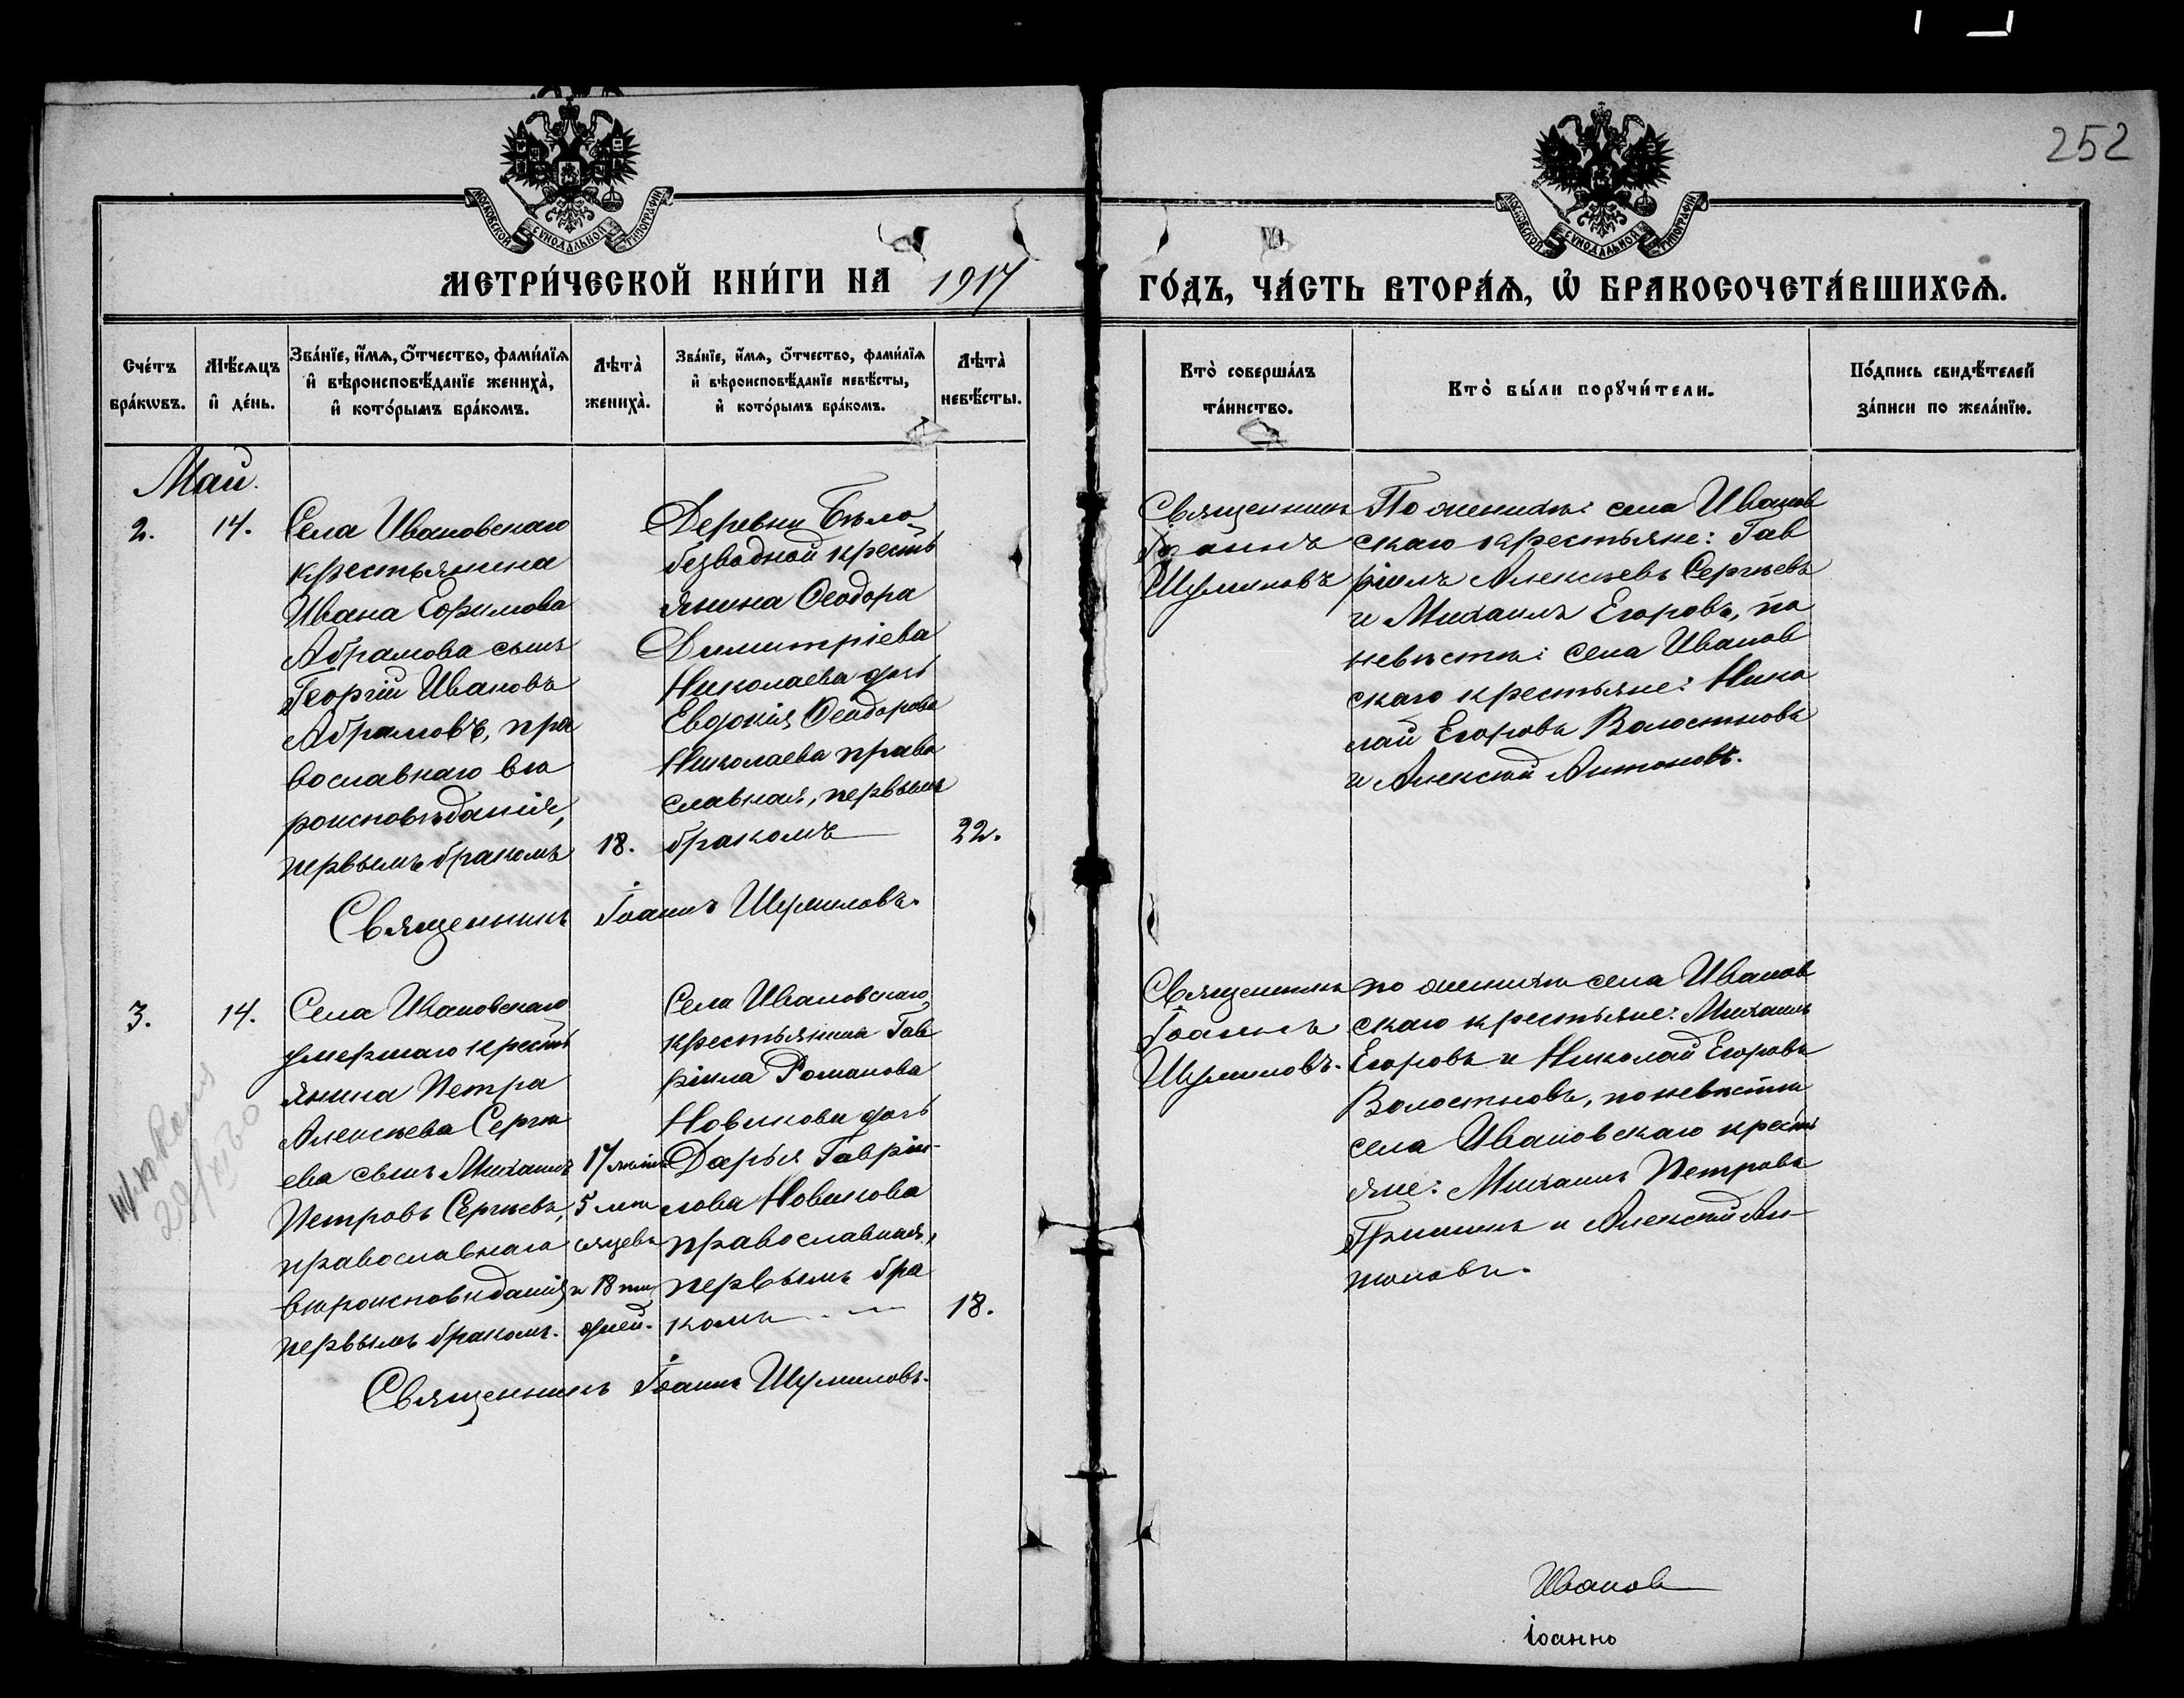 252
МОСКОВСКОЙ СУНОДАЛЬНОЙ ТИПОГРАФІИ
МОСКОВСКОЙ СУНОДАЛЬНОЙ ТИПОГРАФІИ
МЕТРИ́ЧЕСКОЙ КНИ́ГИ НА 1917
ГО́ДЪ, ЧА́СТЬ ВТОРА́Ѧ, Ѽ БРАКОСОЧЕТА́ВШИХСѦ.
Сче́тъ
бра́кѡвъ.
Мѣ́сѧцъ
и҆ де́нь.
Зва́нїе, и҆́мѧ, ѻ҆́тчество, фами́лїѧ
и҆ вѣроисповѣ́данїе жениха̀,
и҆ кото́рымъ бра́комъ.
Лѣта̀
жениха̀.
Зва́нїе, и҆́мѧ, ѻ҆́тчество, фами́лїѧ
и҆ вѣроисповѣ́данїе невѣ́сты,
и҆ кото́рымъ бра́комъ.
Лѣта̀
невѣ́сты.
Кто̀ соверша́лъ
та́инство.
Кто̀ бы́ли порꙋчи́тели.
По́дпись свидѣ́телей
за́писи по жела́нїю.
Май.
2.
14.
Села Ивановскаго
крестьянина
Ивана Ефимова
Абрамова сынъ
Георгій Ивановъ
Абрамовъ, пра
вославнаго вѣ
роисповѣданія,
первымъ бракомъ
18.
Деревни Бѣло
безводной кресть
янина Ѳеодора
Димитріева
Николаева дочь
Евдокія Ѳеодорова
Николаева право
славная, первымъ
бракомъ
22.
Священникъ Іоаннъ Шумиловъ.
Священникъ
Іоаннъ
Шумиловъ
По женихѣ: села Иванов
скаго крестьяне: Гав
ріилъ Алексѣевъ Сергѣевъ
и Михаилъ Егоровъ, по
невѣстѣ: села Иванов
скаго крестьяне: Нико
лай Егоровъ Волостновъ
и Алексѣй Антоновъ.
3.
14.
Села Ивановскаго
умершаго кресть
янина Петра
Алексѣева Сергѣ
ева сынъ Михаилъ
Петровъ Сергѣевъ,
православнаго
вѣроисповѣданія
первымъ бракомъ.
17 лѣтъ
5 мѣ
сяцевъ
и 18 ть
дней.
Села Ивановскаго
крестьянина Гав
ріила Романова
Новикова дочь
Дарья Гавріи-
лова Новикова
православная,
первымъ бра
комъ
18.
Священникъ Іоаннъ Шумиловъ.
Священникъ
Іоаннъ
Шумиловъ.
по женихѣ села Иванов
скаго крестьяне: Михаилъ
Егоровъ и Николай Егоровъ
Волостновъ, по невѣстѣ
села Ивановскаго кресть
яне: Михаилъ Петровъ
Гришинъ и Алексѣй Ан-
тоновъ.
Иванов
іоанно